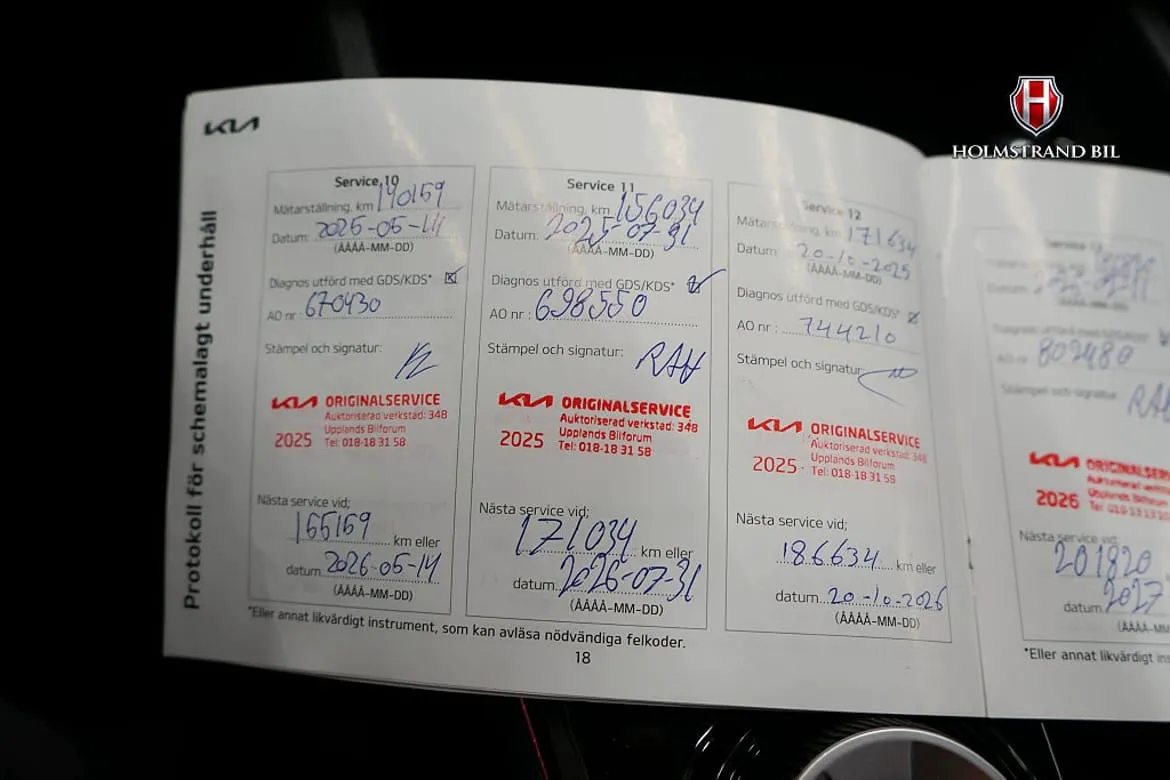 KIA
HOLMSTRAND BIL
Protokoll för schemalagt underhåll
Service 10
Mätarställning, km 140159
Datum: 2025-05-14
(ÅÅÅÅ-MM-DD)
Diagnos utförd med GDS/KDS*
AO nr : 670430
Stämpel och signatur:
KIA ORIGINALSERVICE
Auktoriserad verkstad: 348
Upplands Bilforum
2025 Tel: 018-18 31 58
Nästa service vid;
155159 km eller
datum 2026-05-14
(ÅÅÅÅ-MM-DD)
Service 11
Mätarställning, km 156034
Datum: 2025-07-31
(ÅÅÅÅ-MM-DD)
Diagnos utförd med GDS/KDS*
AO nr : 698550
Stämpel och signatur: RAH
KIA ORIGINALSERVICE
Auktoriserad verkstad: 348
Upplands Bilforum
2025 Tel: 018-18 31 58
Nästa service vid;
171034 km eller
datum 2026-07-31
(ÅÅÅÅ-MM-DD)
Service 12
Mätarställning, km 171634
Datum 20-10-2025
(ÅÅÅÅ-MM-DD)
Diagnos utförd med GDS/KDS*
AO nr : 744210
Stämpel och signatur
KIA ORIGINALSERVICE
Auktoriserad verkstad: 348
Upplands Bilforum
2025 Tel: 018-18 31 58
Nästa service vid;
186634 km eller
datum 20-10-2026
(ÅÅÅÅ-MM-DD)
*Eller annat likvärdigt instrument, som kan avläsa nödvändiga felkoder.
18
Datum
AO nr 802480
Stämpel och signatur:
KIA
2026 Upplands Bilforum
Nästa service vid
201820
datum 2027
*Eller annat likvärdigt